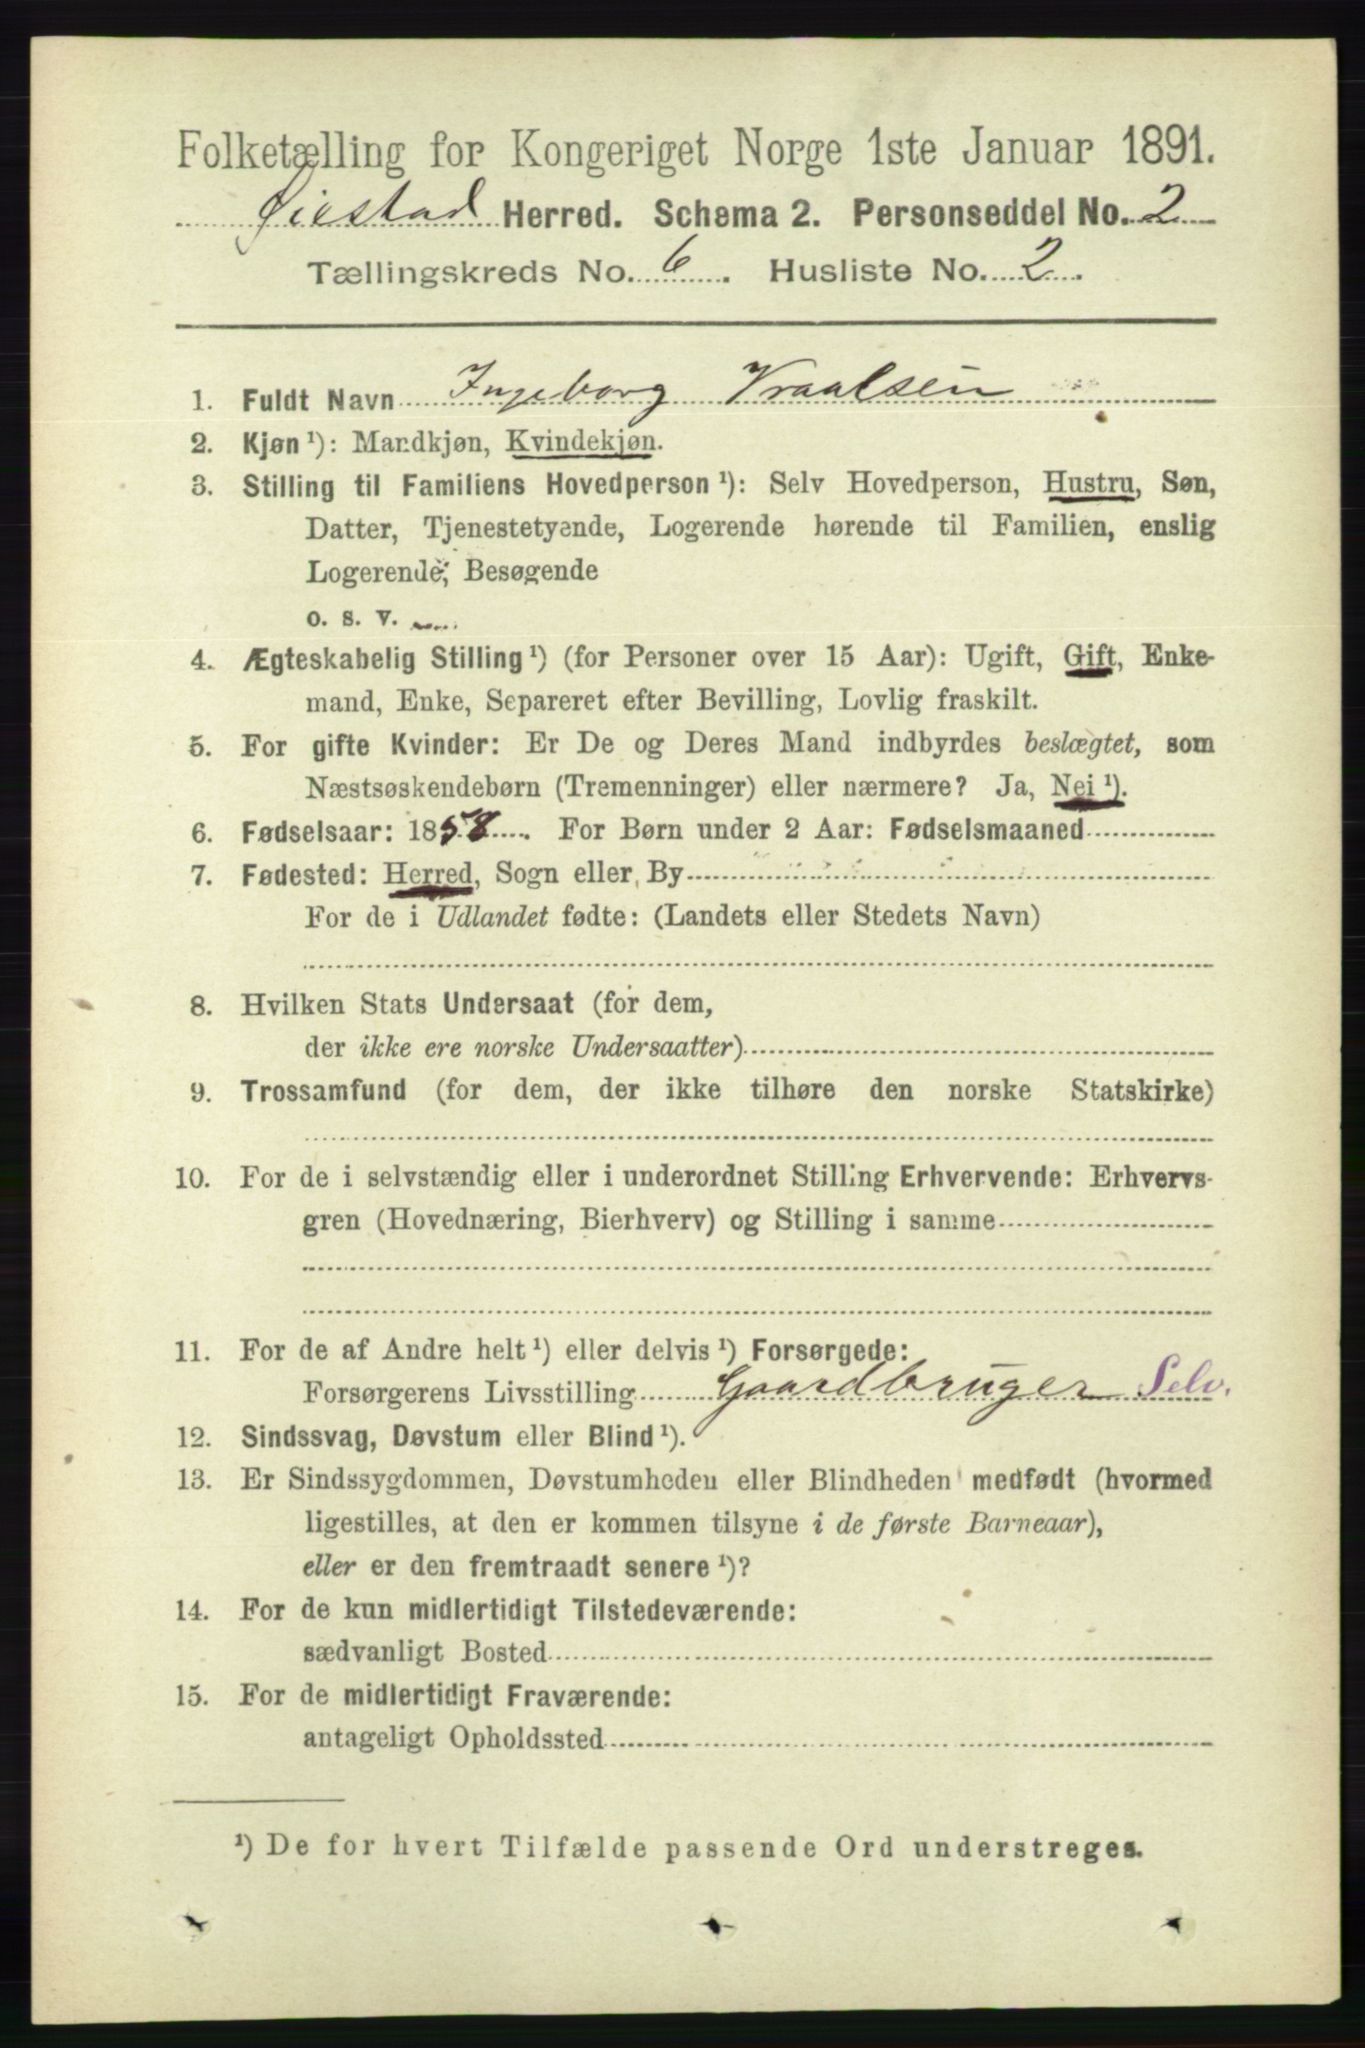 Folketælling for Kongeriget Norge 1ste Januar 1891.
Øiestad Herred. Schema 2. Personseddel No. 2
Tællingskreds No. 6. Husliste No. 2.
1. Fuldt Navn Ingeborg Vraalsen
2. Kjøn ¹): Mandkjøn, Kvindekjøn.
3. Stilling til Familiens Hovedperson ¹): Selv Hovedperson, Hustru, Søn,
Datter, Tjenestetyende, Logerende hørende til Familien, enslig
Logerende, Besøgende
o. s. v.
4. Ægteskabelig Stilling ¹) (for Personer over 15 Aar): Ugift, Gift, Enke-
mand, Enke, Separeret efter Bevilling, Lovlig fraskilt.
5. For gifte Kvinder: Er De og Deres Mand indbyrdes beslægtet, som
Næstsøskendebørn (Tremenninger) eller nærmere? Ja, Nei ¹).
6. Fødselsaar: 1858. For Børn under 2 Aar: Fødselsmaaned
7. Fødested: Herred, Sogn eller By
For de i Udlandet fødte: (Landets eller Stedets Navn)
8. Hvilken Stats Undersaat (for dem,
der ikke ere norske Undersaatter)
9. Trossamfund (for dem, der ikke tilhøre den norske Statskirke)
10. For de i selvstændig eller i underordnet Stilling Erhvervende: Erhvervs-
gren (Hovednæring, Bierhverv) og Stilling i samme
11. For de af Andre helt ¹) eller delvis ¹) Forsørgede:
Forsørgerens Livsstilling Gaardbruger Selv.
12. Sindssvag, Døvstum eller Blind ¹).
13. Er Sindssygdommen, Døvstumheden eller Blindheden medfødt (hvormed
ligestilles, at den er kommen tilsyne i de første Barneaar),
eller er den fremtraadt senere ¹)?
14. For de kun midlertidigt Tilstedeværende:
sædvanligt Bosted
15. For de midlertidigt Fraværende:
antageligt Opholdssted
¹) De for hvert Tilfælde passende Ord understreges.